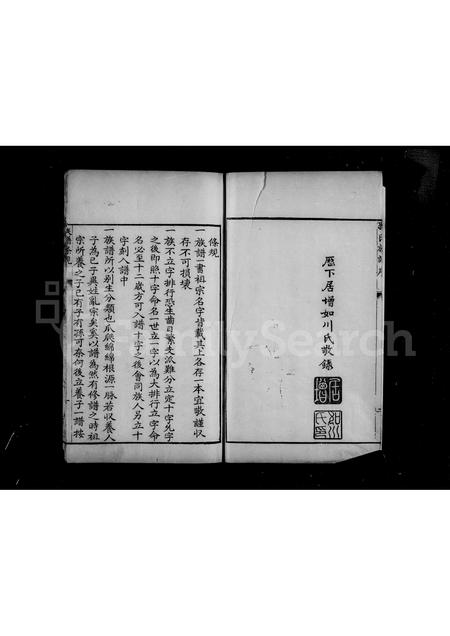 歷下居增如川氏敬錄
居增
如川氏印
條規
一族譜一書祖宗名字皆載其上各存一本宜敬謹收
存不可損壞
一族不立字排行恐生齒日繁支派難分立定十字允字
之後即照十字命名一世立一字以為大排行立字命
名必至十二歲方可入譜十字之後會同族人另立十
字刻入譜中
一族譜所以別生分類也瓜瓞綿綿根源一脉若收養人
子為己子異姓亂宗矣奚以譜為然有修譜之時祖
宗所養之子已有子有孫可奈何後立養子一譜按
FamilySearch